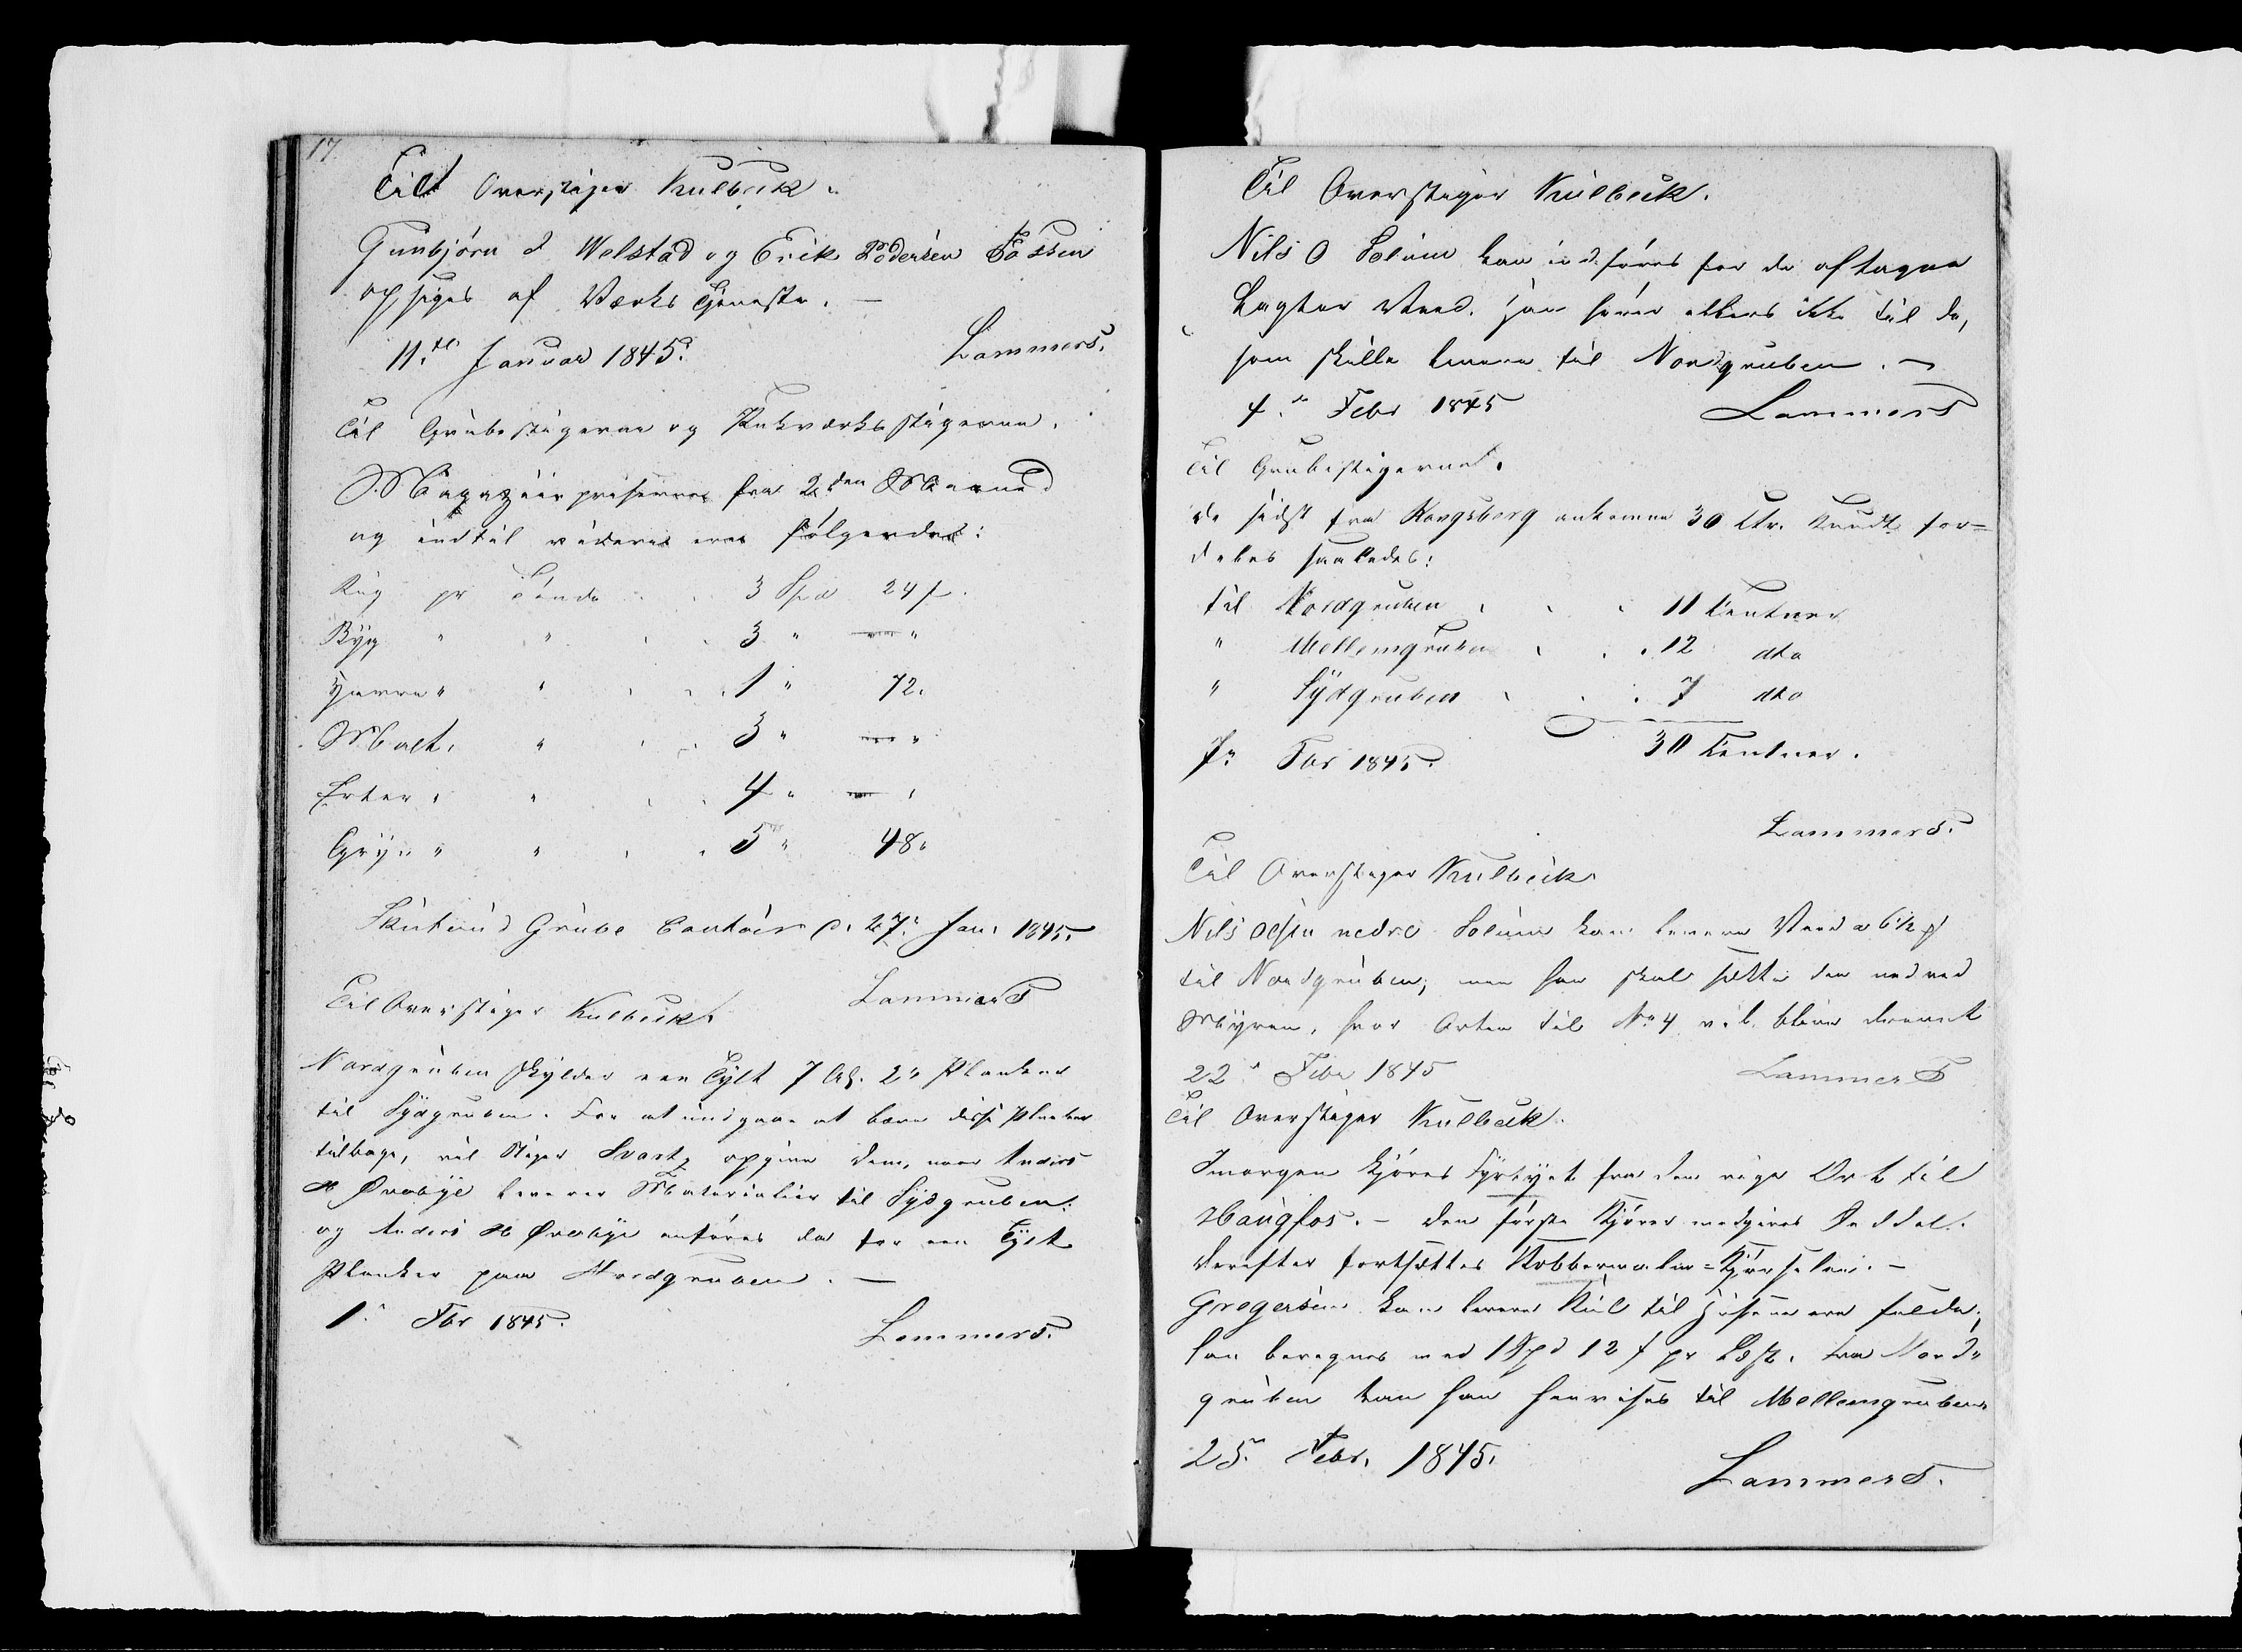 17
Til Overstiger Kulbeck.
Gunbjörn d Welstad og Erik Pedersen Fossen
opsiges af Værks Tjeneste. —
11.te Januar 1845. Lammers.
Til Grubestigerne og Pukværksstigerne.
Magaziinpriserne fra 2den Maaned
og indtil videre ere fölgende:
Rug pr Tönde 3 Spd 24 ß.
Byg " " 3 " — "
Havre " " 1 " 72.
Malt " 3 " — "
Erter " 4 " — "
Gryn " " 5 " 48.
Skuterud Grube Contoir d. 27. Jan. 1845.
Lammers
Til Overstiger Kulbeck.
Nordgruben skylder een Tylt 7 Al. 2" Planker
til Sydgruben. For at undgaae at bære disse Planker
tilbage, vil Stiger Svartz opgive dem, naar Anders
H Overbye leverer Materialier til Sydgruben:
og Anders H Overbye anföres da for een Tylt
Planker paa Nordgruben. —
1. Fbr 1845.
Lammers.
Til Overstiger Kulbeck.
Nils O Solum kan indföres for de aftagne
Lagter Veed. han hörer ellers ikke til de,
som skulle levere til Nordgruben. —
4. Febr 1845 Lammers
Til Grubestigerne.
De sidst fra Kongsberg ankomne 30 Ctr. Krudt for=
deles saaledes:
til Nordgruben 11 Centner
" Mellemgruben 12 dto
" Sydgruben 7 dto
30 Centner.
7. Fbr 1845.
Lammers.
Til Overstiger Kulbeck
Nils Olsen nedre Solum kan levere Veed a 6 1/2 ß
til Nordgruben; men han skal sætte den ned ved
Myren, hvor Orten til No 4 vil blive drevet
22. Febr 1845 Lammers
Til Overstiger Kulbeck.
Imorgen kjöres Fyrtyet fra den nye Ort til
Haugfos. — den förste Kjörer medgives Seddel.
derefter fortsættes Kobbermalm=Kjörselen. —
Gregersen kan levere Kul til husene ere fulde;
han beregnes med 1 Spd 12 ß pr Læst. fra Nord=
gruben kan han henvises til Mellemgruben
25. Febr. 1845.
Lammers.